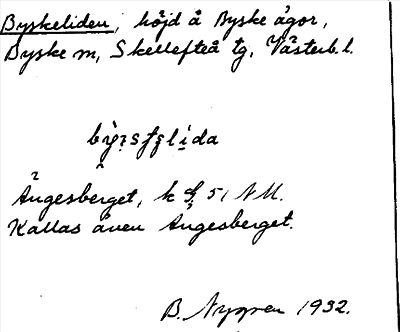 Byskeliden, höjd å Byske ägor,
Byske sn, Skellefteå tg, Västerb. l.
Ängesberget, k 51 NM.
Kallas även Ängesberget.
B. Nygren 1932.